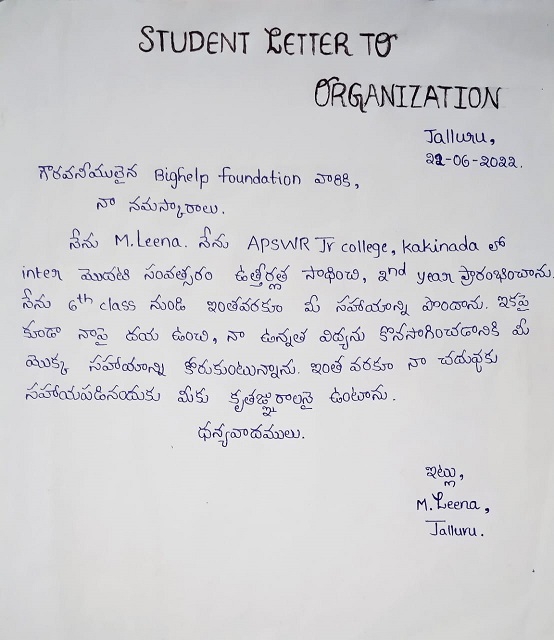 STUDENT LETTER TO
ORGANIZATION
Jalluru,
22-06-2022.
గౌరవనీయులైన Bighelp foundation వారికి,
నా నమస్కారాలు.
నేను M.Leena. నేను APSWR Jr college, kakinada లో
inter మొదటి సంవత్సరం ఉత్తీర్ణత సాధించి, 2nd year ప్రారంభించాను.
నేను 6th class నుండి ఇంతవరకూ మీ సహాయాన్ని పొందాను. ఇకపై
కుడా నాపై దయ ఉంచి, నా ఉన్నత విద్యను కొనసాగించడానికి మీ
మొక్క సహాయాన్ని కోరుకుంటున్నాను. ఇంత వరకూ నా చదువుకు
సహాయపడినందుకు మీకు కృతజ్ఞురాలనై ఉంటాను.
ధన్యవాదములు.
ఇట్లు,
M.Leena,
Jalluru.